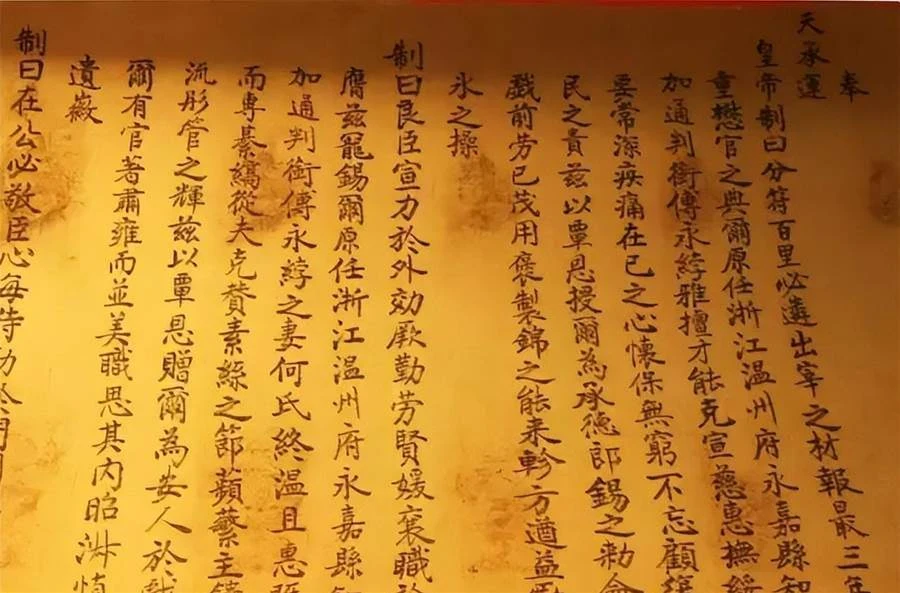 奉
天承運
皇帝制曰分符百里必遴出宰之材報最三年
重懋官之典爾原任浙江温州府永嘉縣知
加通判銜傅永綍雅擅才能克宣慈惠撫綏
要常深疾痛在已之心懷保無窮不忘顧復
民之責兹以覃恩授爾為承德郎錫之勅命
戲前劳已茂用褒製錦之能来軫方遒益勵
氷之操
制曰良臣宣力於外効厥勤劳賢媛襄職於
膺兹寵錫爾原任浙江温州府永嘉縣知
加通判銜傅永綍之妻何氏終温且惠既
而專綦縞從夫克賛素絲之節蘋蘩主饋
流彤管之輝兹以覃恩贈爾為安人於戲
爾有官著肅雍而並美職思其内昭淑慎
遺薇
制曰在公必敬臣心每待